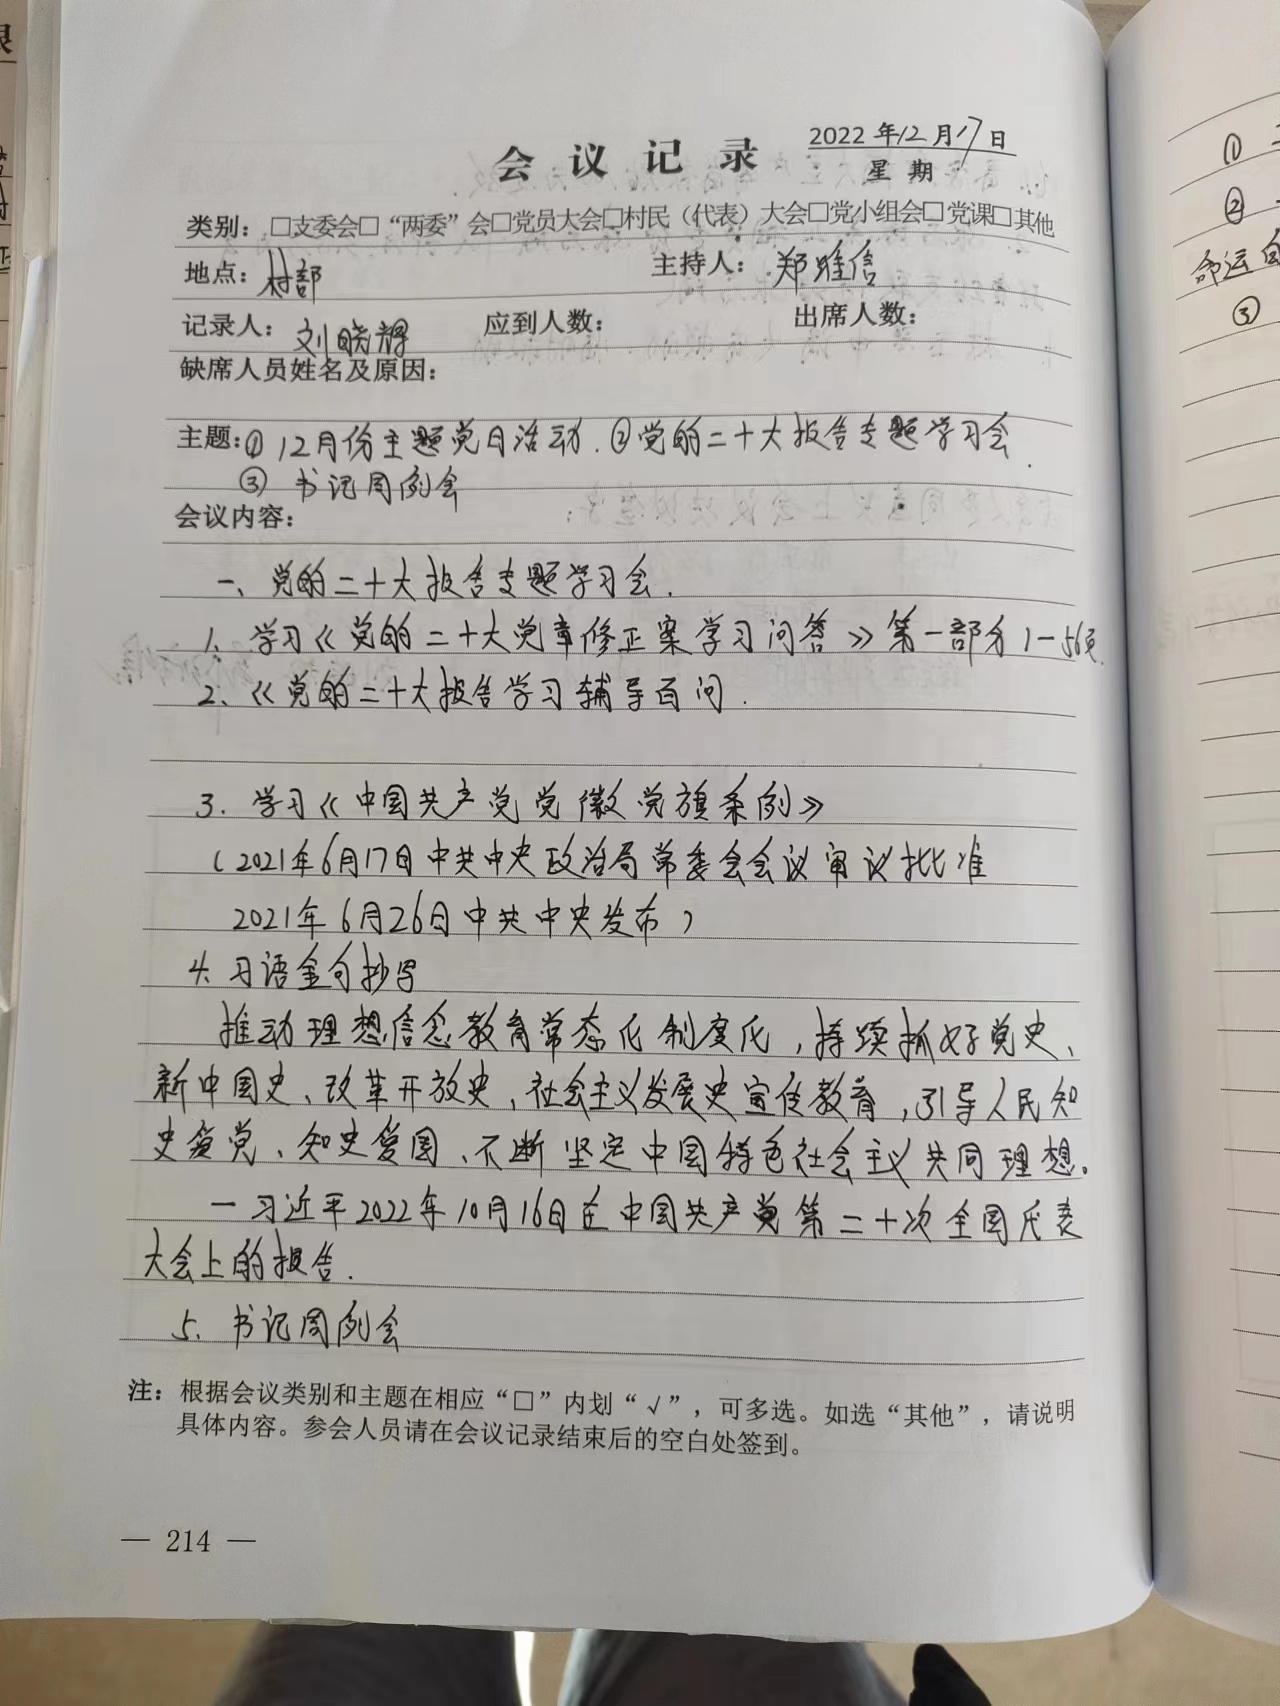 会议记录
2022年12月17日
星期
类别：□支委会□“两委”会□党员大会□村民（代表）大会□党小组会□党课□其他
地点：村部 主持人：郑雅信
记录人：刘晓辉 应到人数： 出席人数：
缺席人员姓名及原因：
主题：① 12月份主题党日活动.②党的二十大报告专题学习会.
③ 书记周例会
会议内容：
一、党的二十大报告专题学习会.
1. 学习《党的二十大党章修正案学习问答》第一部分1-56页.
2、《党的二十大报告学习辅导百问.
3. 学习《中国共产党党徽党旗条例》
（2021年6月17日中共中央政治局常委会会议审议批准
2021年6月26日中共中央发布）
4. 习语金句抄写
推动理想信念教育常态化制度化，持续抓好党史、
新中国史、改革开放史，社会主义发展史宣传教育，引导人民知
史爱党、知史爱国、不断坚定中国特色社会主义共同理想。
一习近平2022年10月16日在中国共产党第二十次全国代表
大会上的报告.
5. 书记周例会
注：根据会议类别和主题在相应“□”内划“√”，可多选。如选“其他”，请说明
具体内容。参会人员请在会议记录结束后的空白处签到。
— 214 —
①
②
命运
③